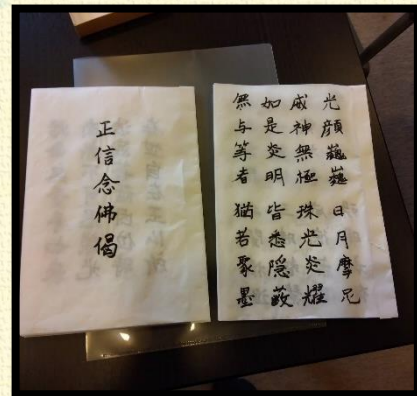 光顔巍巍 日月摩尼
威神無極 珠光炎耀
如是炎明 皆悉隠蔽
無与等者 猶若聚墨
正信念佛偈